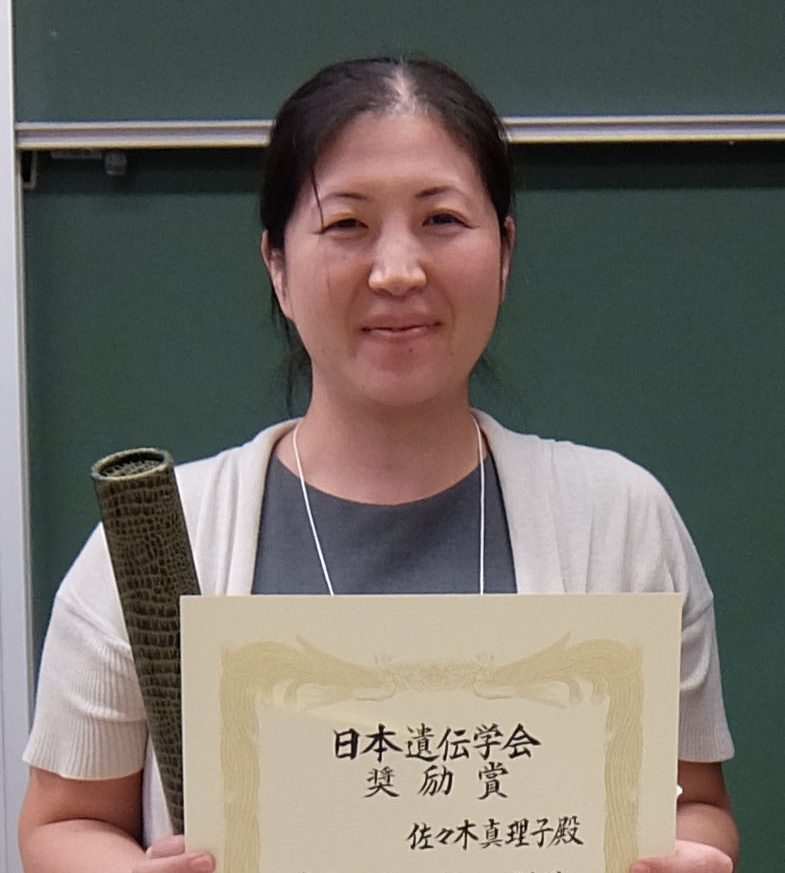 日本遺伝学会
奨励賞
佐々木真理子殿